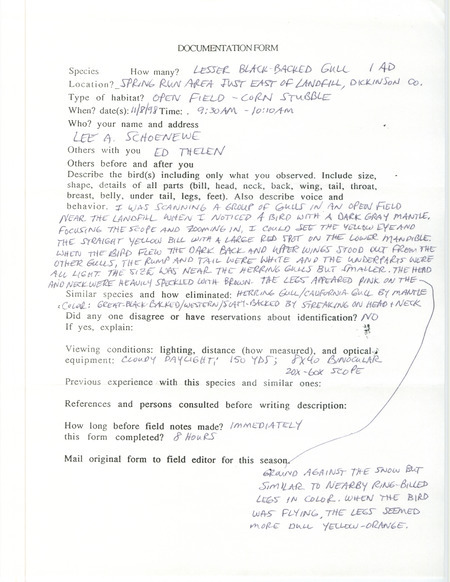 DOCUMENTATION FORM
Species How many? LESSER BLACK-BACKED GULL 1 AD
Location? SPRING RUN AREA JUST EAST OF LANDFILL, DICKINSON CO.
Type of habitat? OPEN FIELD - CORN STUBBLE
When? date(s): 11/8/98 Time: . 9:30AM - 10:10AM
Who? your name and address
LEE A. SCHOENEWE
Others with you ED THELEN
Others before and after you
Describe the bird(s) including only what you observed. Include size,
shape, details of all parts (bill, head, neck, back, wing, tail, throat,
breast, belly, under tail, legs, feet). Also describe voice and
behavior. I WAS SCANNING A GROUP OF GULLS IN AN OPEN FIELD
NEAR THE LANDFILL WHEN I NOTICED A BIRD WITH A DARK GRAY MANTLE.
FOCUSING THE SCOPE AND ZOOMING IN, I COULD SEE THE YELLOW EYE AND
THE STRAIGHT YELLOW BILL WITH A LARGE RED SPOT ON THE LOWER MANDIBLE.
WHEN THE BIRD FLEW THE DARK BACK AND UPPER WINGS STOOD OUT FROM THE
OTHER GULLS, THE RUMP AND TAIL WERE WHITE AND THE UNDERPARTS WERE
ALL LIGHT THE SIZE WAS NEAR THE HERRING GULLS BUT SMALLER. THE HEAD
AND NECK WERE HEAVILY SPECKLED WITH BROWN. THE LEGS APPEARED PINK ON THE
Similar species and how eliminated: HERRING GULL/CALIFORNIA GULL BY MANTLE
COLOR: GREAT-BLACK BACKED/WESTERN/SLATY-BACKED BY STREAKING ON HEAD + NECK
Did any one disagree or have reservations about identification? NO
If yes, explain:
Viewing conditions: lighting, distance (how measured), and optical
equipment: CLOUDY DAYLIGHT; 150 YDS; 8X40 BINOCULAR
20X-60X SCOPE
Previous experience with this species and similar ones:
References and persons consulted before writing description:
How long before field notes made? IMMEDIATELY
this form completed? 8 HOURS
Mail original form to field editor for this season.
GROUND AGAINST THE SNOW BUT
SIMILAR TO NEARBY RING-BILLED
LEGS IN COLOR. WHEN THE BIRD
WAS FLYING, THE LEGS SEEMED
MORE DULL YELLOW-ORANGE.